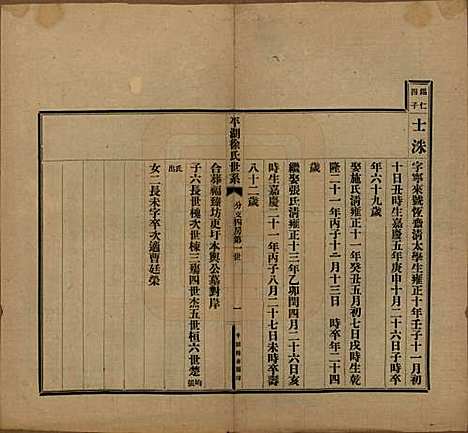 錫仁
四子
士洙
字寧來號恆齋清太學生雍正十年壬子十一月初
十日丑時生嘉慶五年庚申十月二十六日子時卒
年六十九歲
娶施氏清雍正十一年癸丑五月初七日戌時生乾
隆二十一年丙子十二月十三日 時卒年二十四
歲
繼娶張氏清雍正十三年乙卯閏四月二十六日亥
時生嘉慶二十一年丙子八月二十七日未時卒壽
八十二歲
合葬福臻坊東圩本與公墓對岸
子六長世槐次世棟三霱四世杰五世桓六世楚均張
氏出
女二長未字卒次適曹廷榮
平湖徐氏世系
分支四房第一世
一